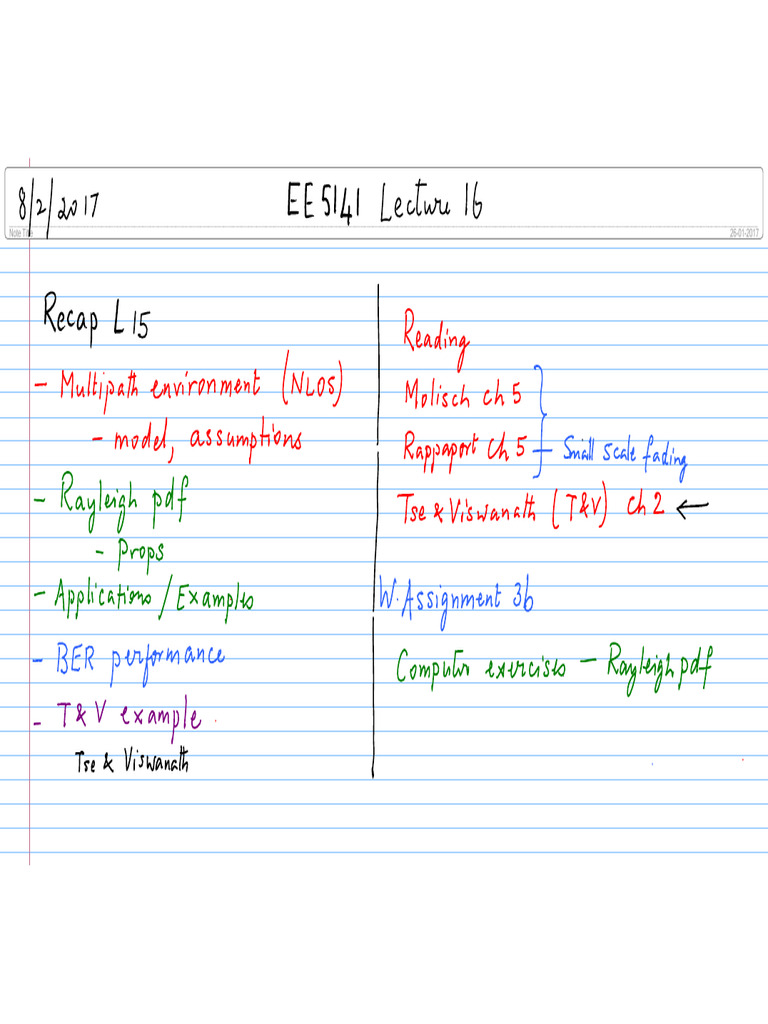 8/2/2017 EE5141 Lecture 16
Note Title 26-01-2017
Recap L15
- Multipath environment (NLOS)
- model, assumptions
- Rayleigh pdf
- Props
- Applications / Examples
- BER performance
- T&V example.
Tse & Viswanath
Reading
Molisch ch 5
Rappaport ch 5 - Small scale fading
Tse & Viswanath (T&V) ch 2 ←
W. Assignment 3b
Computer exercises - Rayleigh pdf